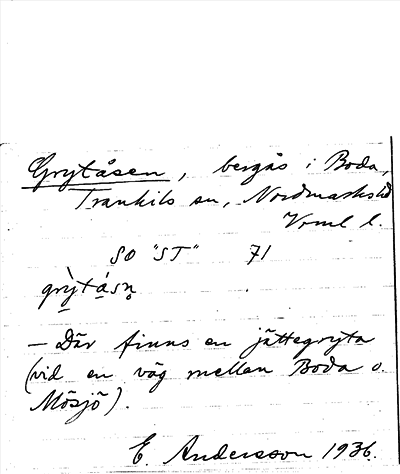 Grytåsen, bergås i Boda,
Trankils sn, Nordmarks hd
Vrml l.
SO "ST" 71
grỳtá̱sn̥
– Där finns en jättegryta
(vid en väg mellan Boda o.
Mösjö).
E. Andersson 1936.